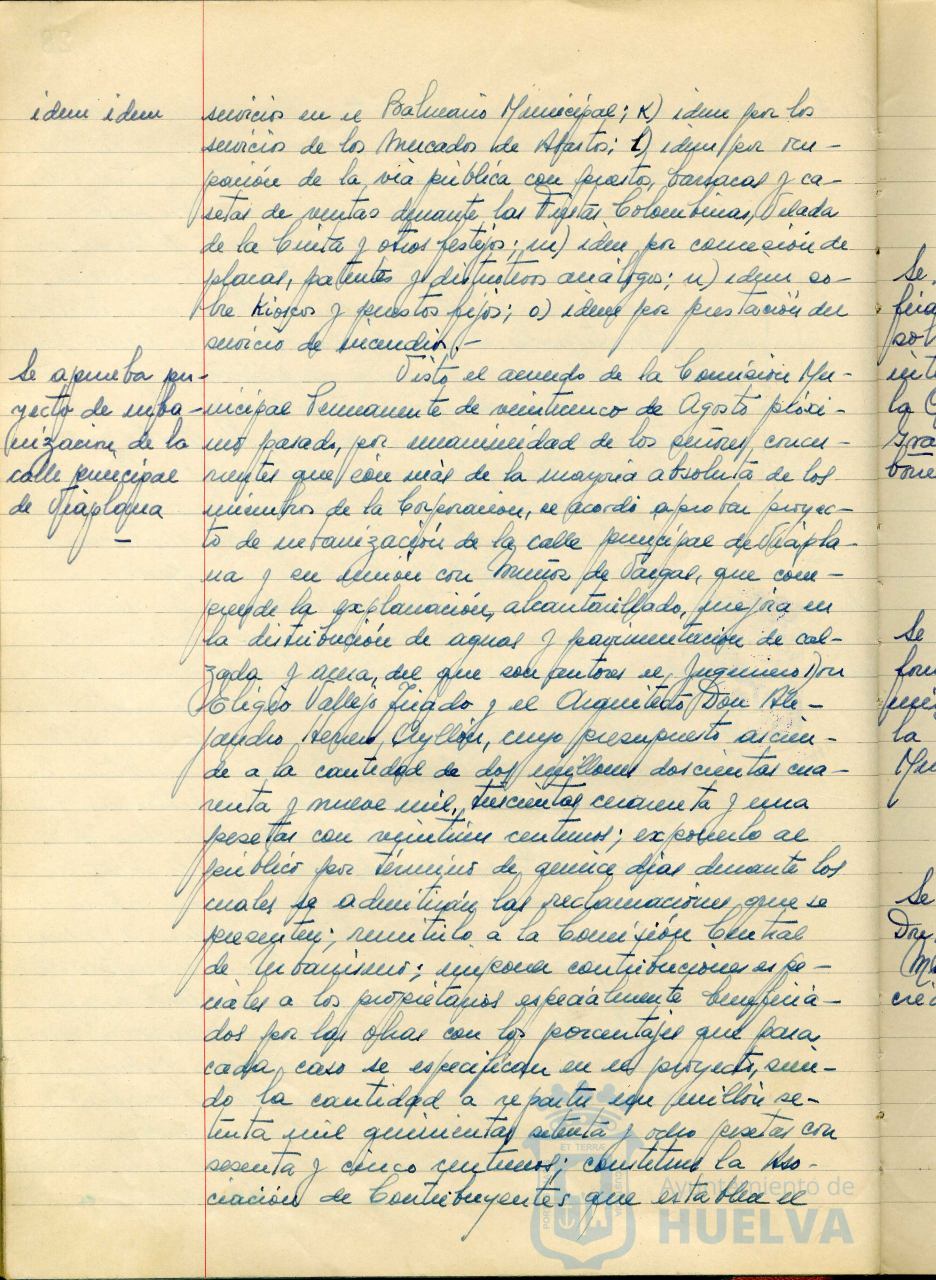 idem idem
servicios en el Balneario Municipal; k) idem por los
servicios de los Mercados de Abastos; l) idem por ocu-
pación de la vía pública con puestos, barracas y ca-
setas de ventas durante las Fiestas Colombinas, Velada
de la Cinta y otros festejos; m) idem por concesión de
placas, patentes y distintivos análogos; n) idem so-
bre Kioscos y puestos fijos; o) idem por prestación del
servicio de incendios.-
Se aprueba pro-
yecto de urba-
nización de la
calle principal
de Viaplana
Visto el acuerdo de la Comisión Mu-
nicipal Permanente de veinticinco de Agosto próxi-
mo pasado, por unanimidad de los señores concu-
rrentes que son más de la mayoría absoluta de los
miembros de la Corporación, se acordó aprobar proyec-
to de urbanización de la calle principal de Viapla-
na y en unión con Muñoz de Vargas, que com-
prende la explanación, alcantarillado, mejora en
la distribución de aguas y pavimentación de cal-
zada y acera, del que son autores el Ingeniero Don
Eligio Vallejo Tirado y el Arquitecto Don Ale-
jandro Herrero Ayllón, cuyo presupuesto ascien-
de a la cantidad de dos millones doscientas cua-
renta y nueve mil, trescientas cuarenta y una
pesetas con veintiún centimos; exponerlo al
público por término de quince días durante los
cuales se admitirán las reclamaciones que se
presenten; remitirlo a la Comisión Central
de Urbanismo; imponer contribuciones espe-
ciales a los propietarios especialmente beneficia-
dos por las obras con los porcentajes que para
cada caso se especifican en el proyecto, sien-
do la cantidad a repartir un millón se-
tenta mil quinientas setenta y ocho pesetas con
sesenta y cinco centimos; constituir la Aso-
ciación de Contribuyentes que establece el
Se
Se
la
Se
ET TERRA
Ayuntamiento de
HUELVA